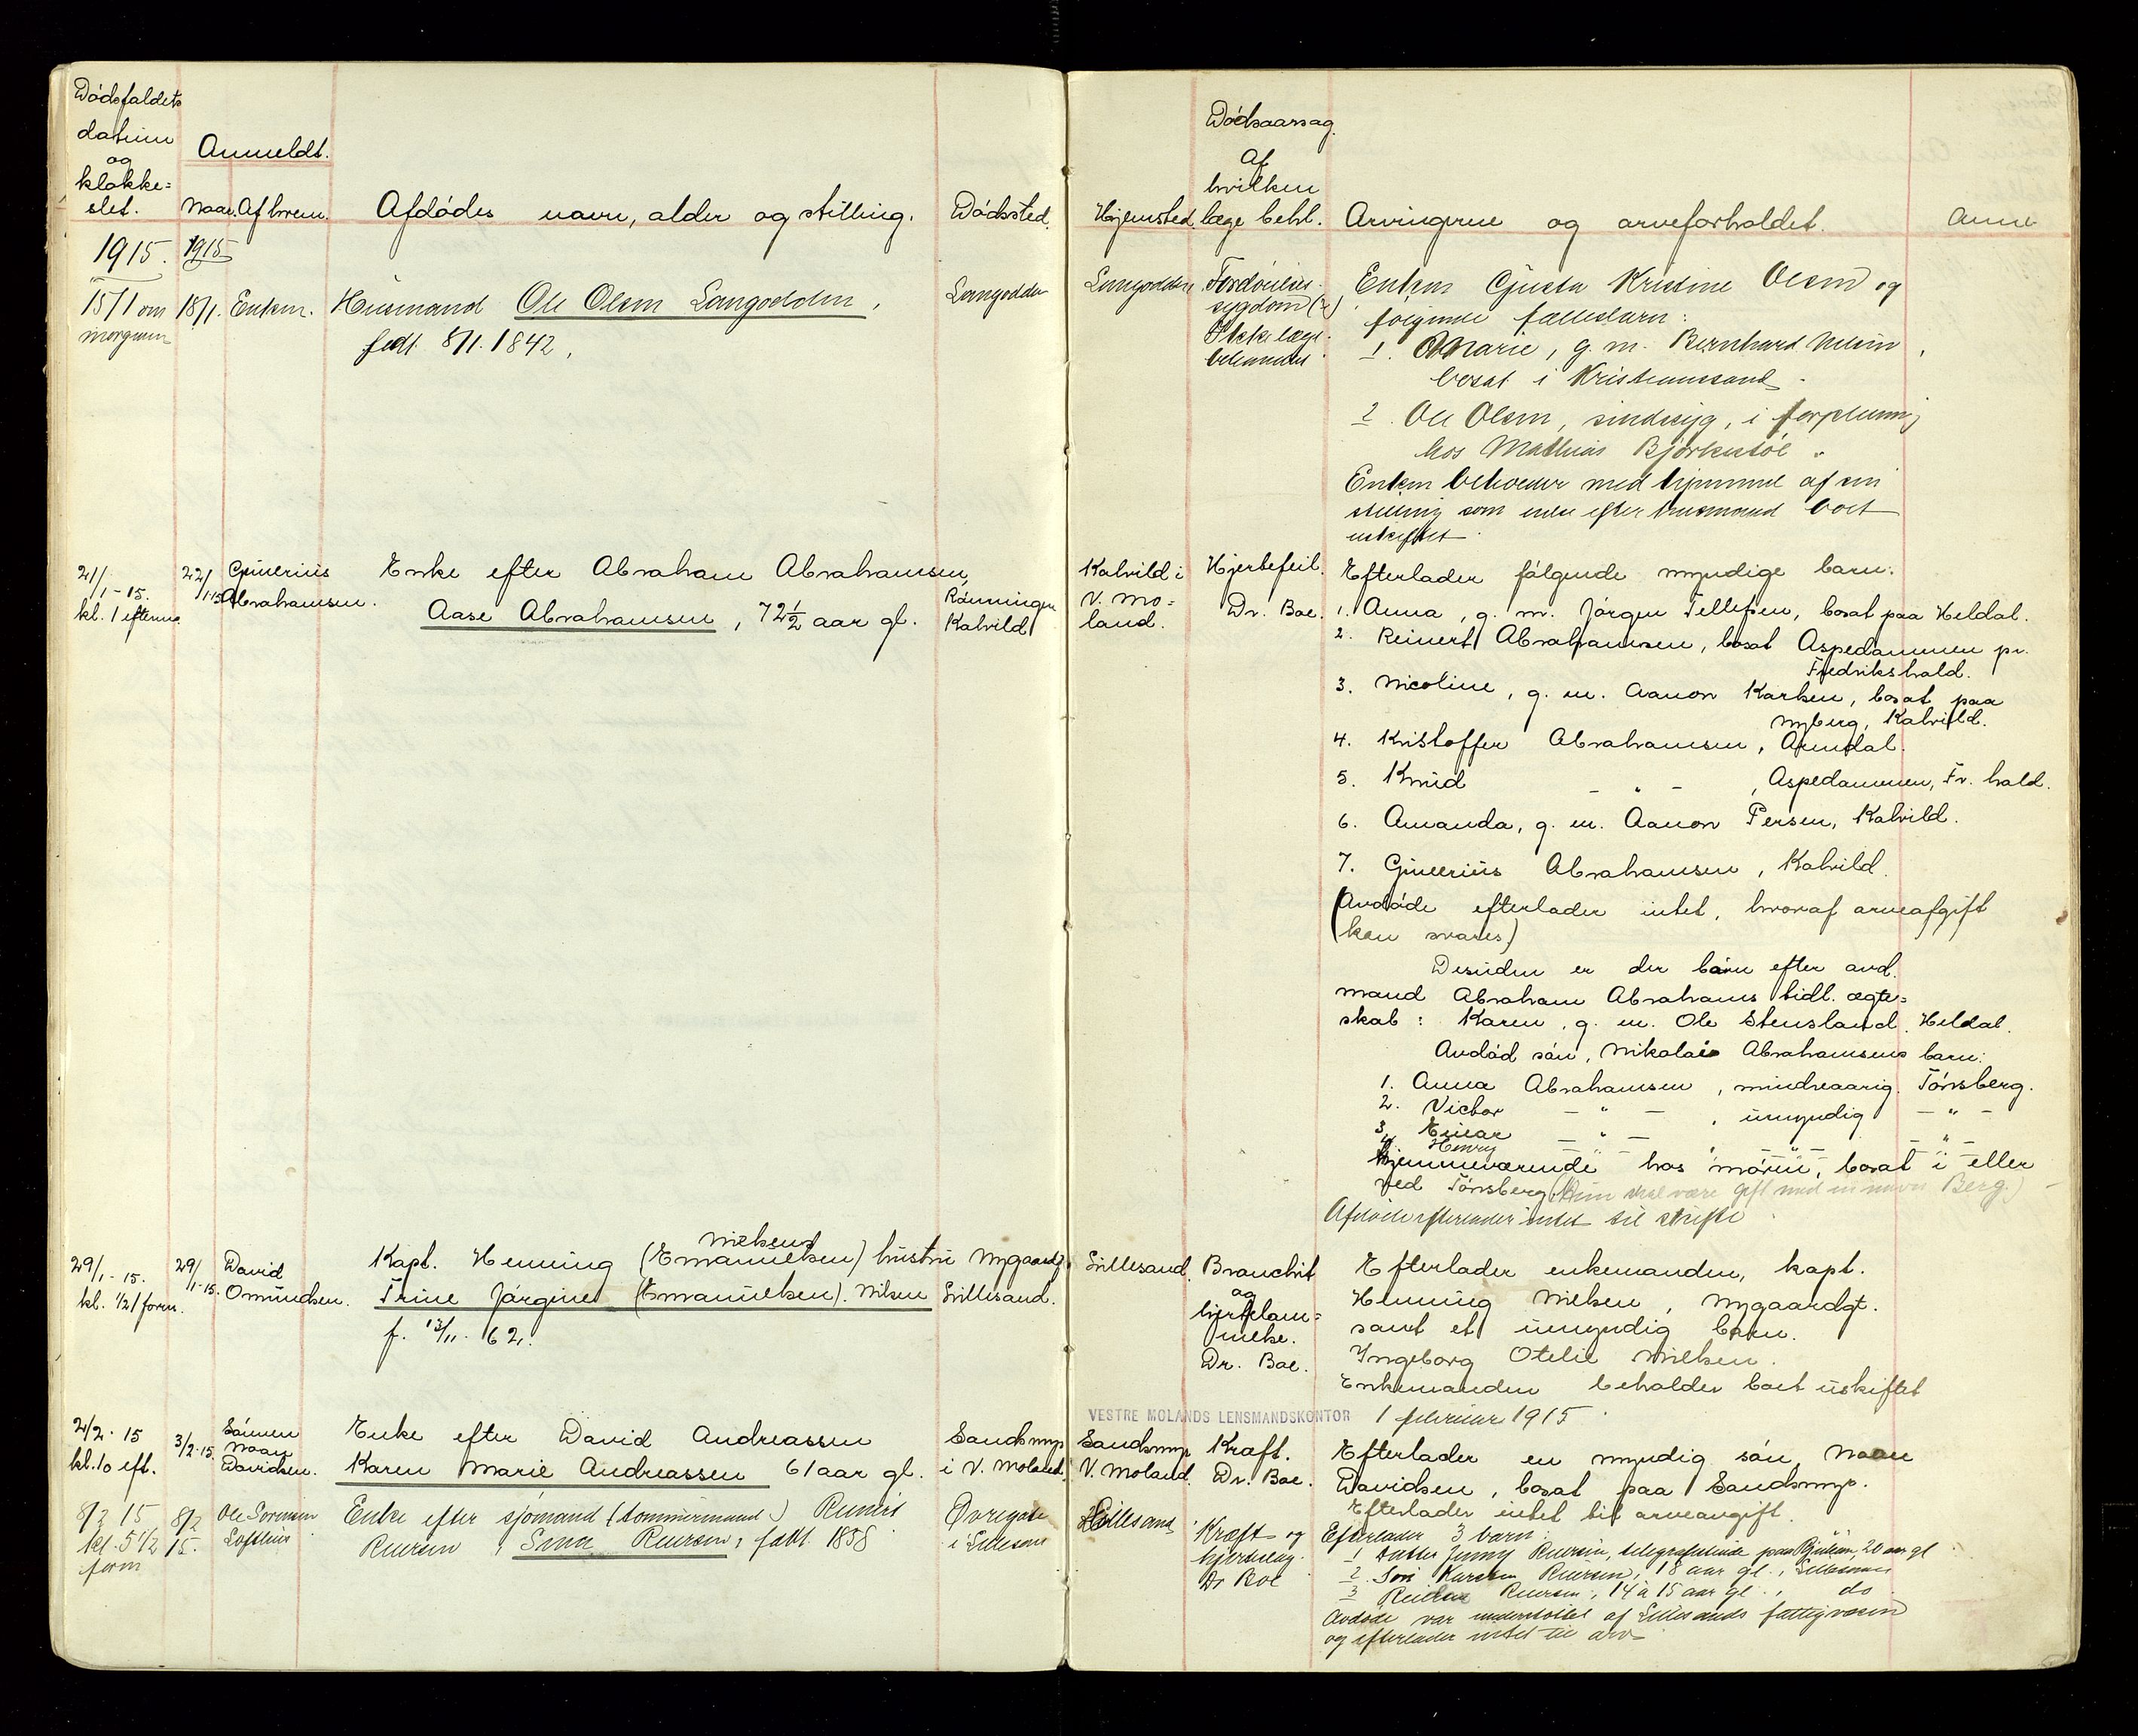 Dødsfaldets
datum
og
klokke=
slet.
Anmeldt.
Naar. Af hvem.
Afdødes navn, alder og stilling.
Dødssted.
Hjemsted.
Dødsaarsag.
Af
hvilken
læge behl.
Arvingerne og arveforholdet.
Anm
1915. 1915
15/1 om
morgenen
18/1. Enken.
Husmand Ole Olsen Langodden,
født 8/1. 1842.
Langodden
Langodden
Fordøielses
sygdom (?)
Ikke læge
behandlet
Enken Gjusta Kristine Olsen og
følgende fællesbarn:
1. Marie, g. m. Bernhard
bosat i Kristianssand.
2. Ole Olsen, sindssyg, i forpleining
hos Mathias Bjørkestøl.
Enken beholder med hjemmel af sin
stilling som enke efter husmand boet
uskiftet.
21/1-15.
kl. 1 efterm.
22/1-15
Gunerius
Abrahamsen.
Enke efter Abraham Abrahamsen,
Aase Abrahamsen, 72 1/2 aar gl.
Rønningen
Kalvild
Kalvild i
V. Mo=
land.
Hjertefeil.
Dr. Boe.
Efterlader følgende myndige barn:
1. Anna, g. m. Jørgen Tellefsen, bosat paa Heldal.
2. Reinert Abrahamsen, bosat Aspedammen pr.
Fredrikshald.
3. Nicoline, g. m. Aanon Karlsen, bosat paa
Nyberg, Kalvild.
4. Kristoffer Abrahamsen, Arendal.
5. Knud - " - , Aspedammen, Fr. hald.
6. Amanda, g. m. Aanon Persen, Kalvild.
7. Gunerius Abrahamsen, Kalvild.
(Avdøde efterlader intet, hvoraf arveafgift
kan svares)
Desuden er der barn efter avd.
mand Abraham Abrahams tidl. ægte=
skab: Karen, g. m. Ole Stensland, Heldal.
Avdød søn, Nikolai Abrahamsens barn:
1. Anna Abrahamsen, mindreaarig. Tønsberg.
2. Victor - " - , umyndig - " -
3. Einar - " - , - " - - " -
4. Henry
Hjemmeværende hos moren, bosat i eller
ved Tønsberg (Hun skal være gift med en navn Berg.)
Afdøde efterlader intet til skifte.
29/1-15.
kl. 1/21 form.
29/1-15.
David
Omundsen.
Nielsens
Kapt. Henning (Emanuelsen) hustru
Trine Jørgine (Emanuelsen). Nilsen
f. 13/11. 62.
Nygaardsg.
Lillesand.
Lillesand.
Bronchit
og
hjertelam=
melse.
Dr. Boe.
Efterlader enkemanden, kapt.
Henning Nielsen, Nygaardgt.
samt et umyndig barn.
Ingeborg Otelie Nielsen.
Enkemanden beholder boet uskiftet
1 februar 1915.
VESTRE MOLANDS LENSMANDSKONTOR
2/2. 15
kl. 10 eft.
3/2. 15.
Sønnen
Noan
Davidsen.
Enke efter David Andreassen
Karen Marie Andreassen 61 aar gl.
Sandsmyr
i V. Moland.
Sandsmyr
V. Moland.
Kræft.
Dr. Boe.
Efterlader en myndig søn, Noan
Davidsen, bosat paa Sandsmyr.
Efterlader intet til arveavgift.
8/2 15
kl. 5 1/2
form
8/2
15.
Ole Sørensen
Enke efter sjømand (tømmermand)
Reiersen, Sina Reiersen, født 1858
Øvregate
i Lillesand
Lillesand
Kræft og
Dr Boe
Efterlader 3 barn:
1. Datter Jenny Reiersen, telegrafistinde paa 20 aar gl
2. Søn Karsten Reiersen, 18 aar gl., Lillesand
3 Reidar Reiersen, 14 à 15 aar gl., do.
Avdøde var understøttet af Lillesands fattigvæsen
og efterlader intet til arv.